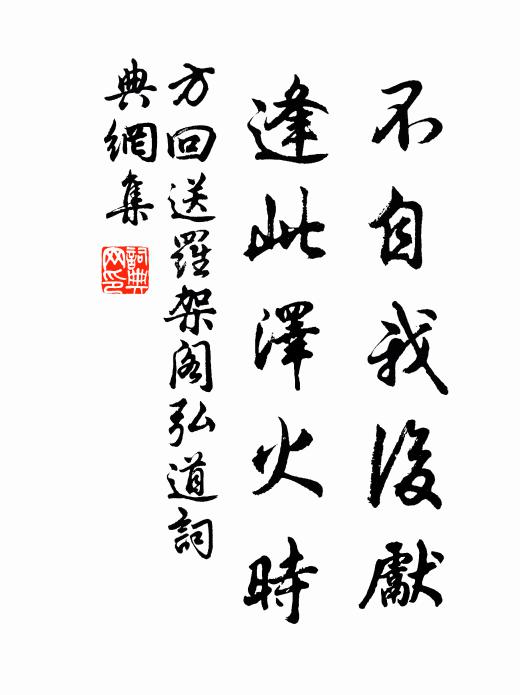 不自我後獻
逢此澤火時
方回送羅架阁弘道詞
典網集
詞典网印